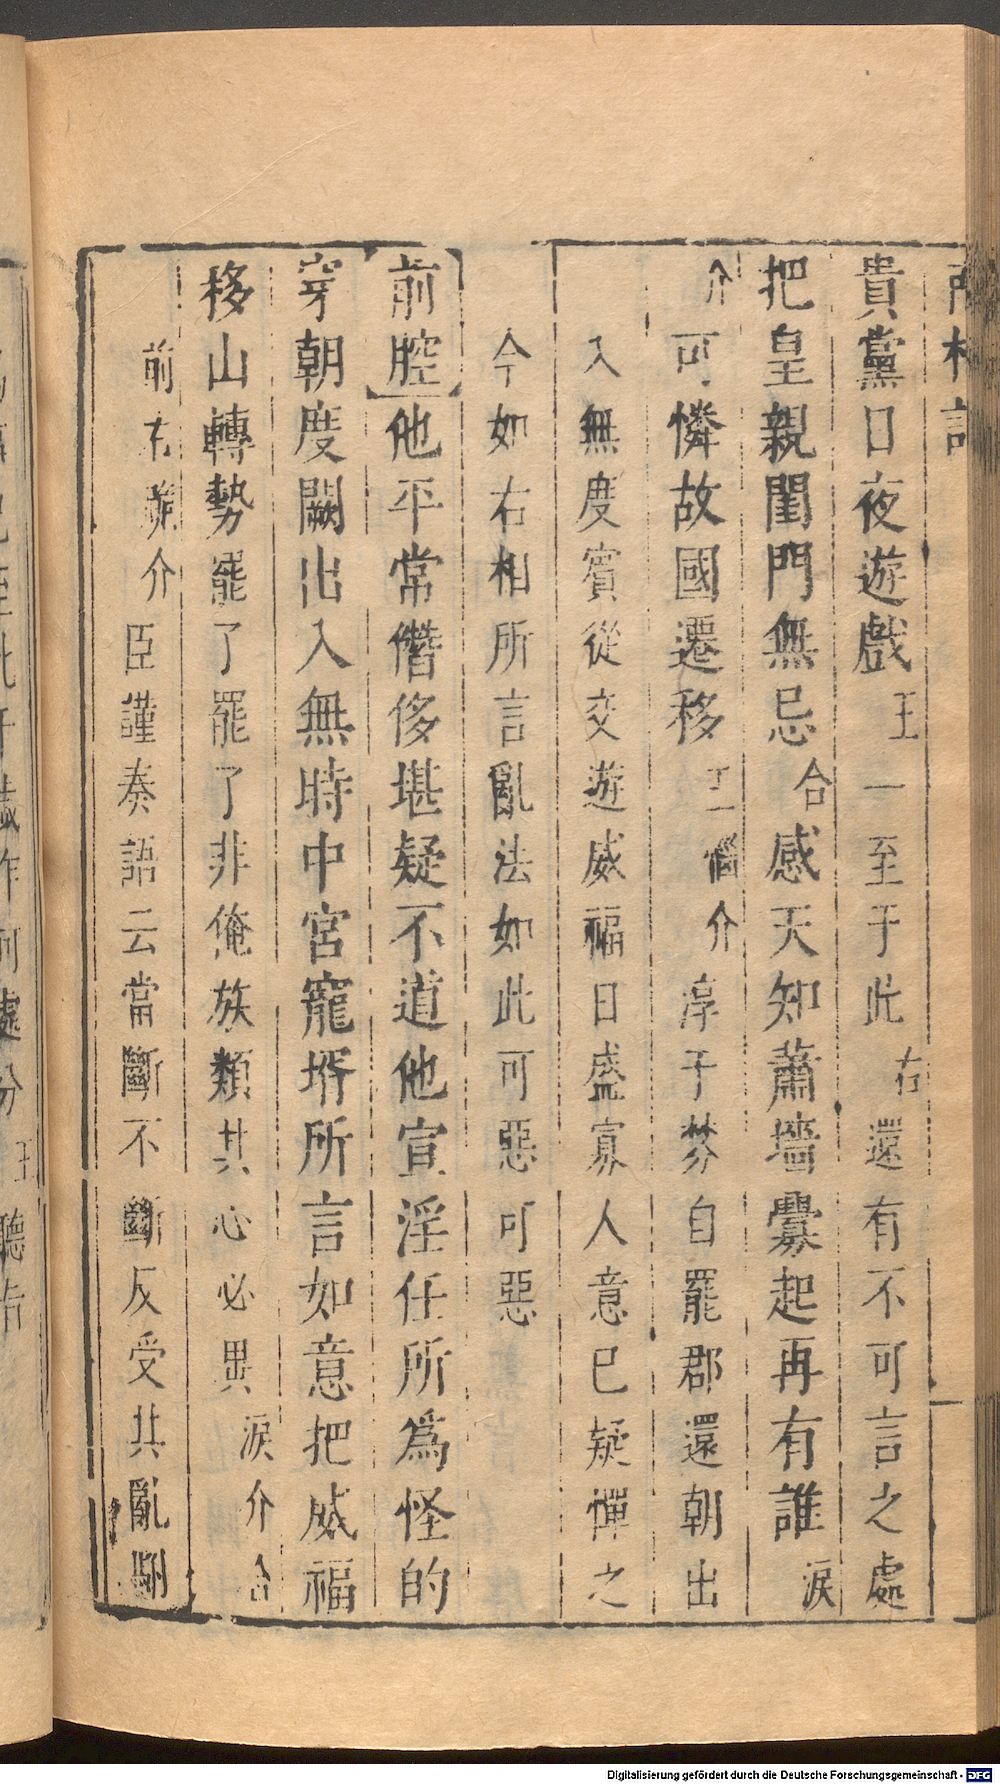 貴黨日夜遊戲王一至于此右還有不可言之處
把皇親閨門無忌合感天知蕭墻釁起再有誰淚
介可憐故國遷移王惱介淳于棼自罷郡還朝出
入無度賓從交遊威福日盛寡人意已疑憚之
今如右相所言亂法如此可惡可惡
前腔他平常僭侈堪疑不道他宣淫任所爲怪的
穿朝度闕出入無時中宮寵壻所言如意把威福
移山轉勢罷了罷了非俺族類其心必異淚介合
前右介臣謹奏語云當斷不斷反受其亂駙
Digitalisierung gefördert durch die Deutsche Forschungsgemeinschaft - DFG